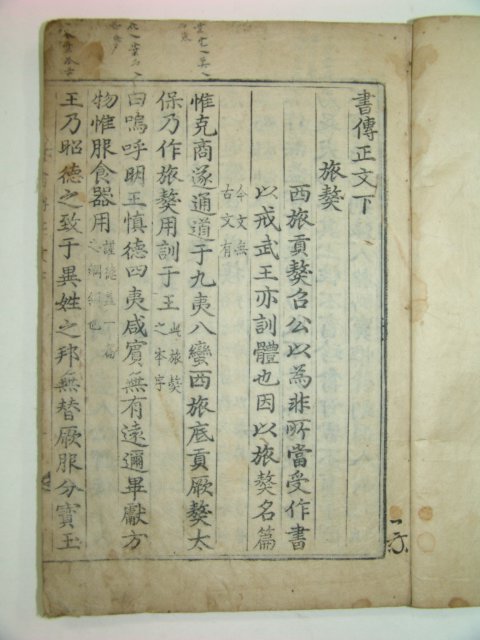 書傳正文下
旅獒
西旅貢獒召公以為非所當受作書
以戒武王亦訓體也因以旅獒名篇
今文無
古文有
惟克商遂通道于九夷八蠻西旅底貢厥獒太
保乃作旅獒用訓于王此旅獒
之本序
曰嗚呼明王慎德四夷咸賓無有遠邇畢獻方
物惟服食器用謹德蓋一篇
之綱領也
王乃昭德之致于異姓之邦無替厥服分寶玉